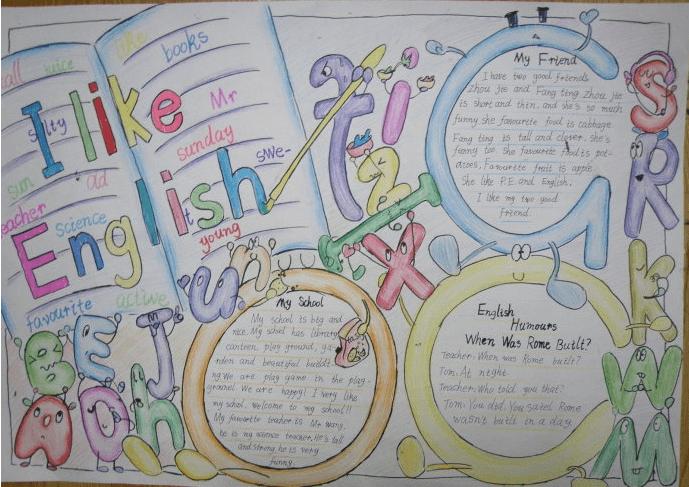 I like
English
call
juice
like
books
salty
Mr
sunday
sun
ad
swe-
teacher
science
it
young
favourite
active
My Friend
I have two good friends
Zhou jie and Fang ting Zhou jie
is short and thin. and she's so much
funny she favourite food is cabbage
Fang ting is tall and clever. she's
funny too She favourite food is pot-
atoes, Favourite fruit is apple
She like P.E. and English.
I like my two good
Friend.
My School
My school is big and
nice. My school has library
canteen, play ground, ga-
rden and beautiful buildi
ng We are play game in the play-
ground. We are happy! I very like
my school. Welcome to my school!!
My favourite teacher is Mr Wang,
he is my science teacher. He's tall
and strong, he is very
funny.
English
Humours
When Was Rome Built?
Teacher: When was Rome built?
Tom: At night.
Teacher: Who told you that?
Tom: You did. You saied Rome
wasn't built in a day
t i
z
I
x
S
R
k
W
M
u n
B E J
A O h